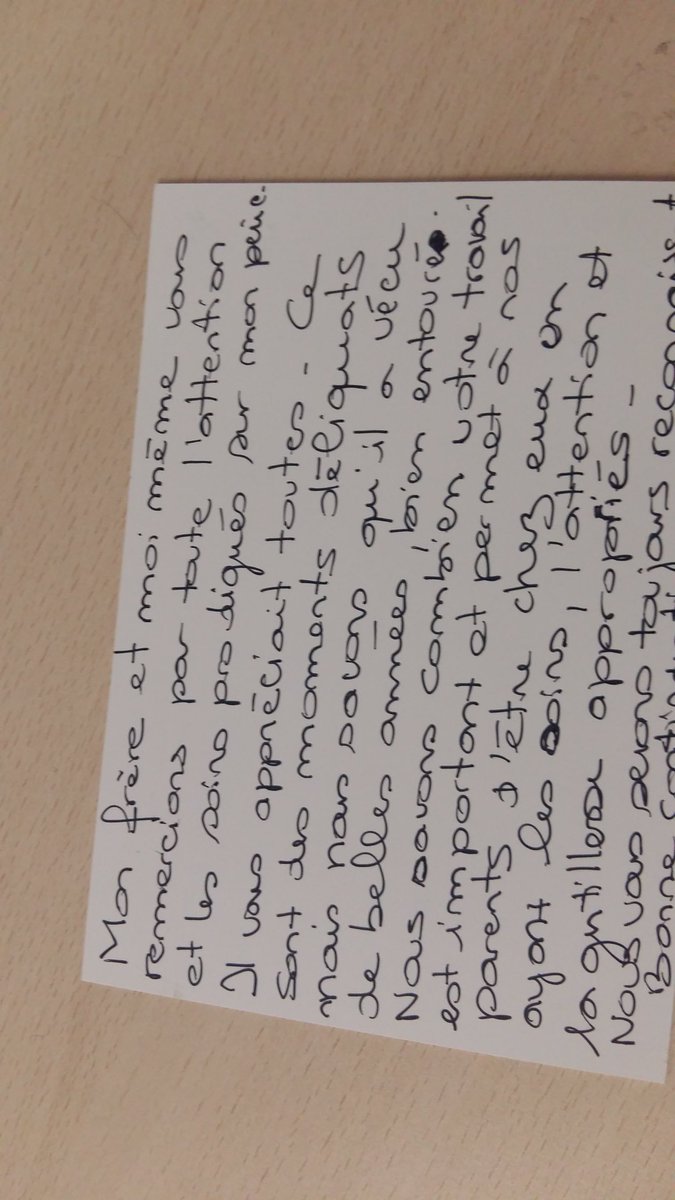 Mon frère et moi même vous
remercions par toute l'attention
et les soins prodigués sur mon père.
Il vous appréciait toutes - Ce
sont des moments déliquats
mais nous savons qu'il a vécu
de belles années, bien entouré.
Nous savons combien votre travail
est important et permet à nos
parents d'être chez eux en
ayant les soins, l'attention et
la gentillesse appropriés -
Nous vous serons toujours reconnaiss
Bonne